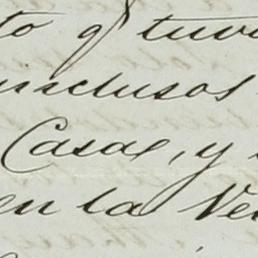 to q' tuv
inclusos
Casas, y
en la Ve